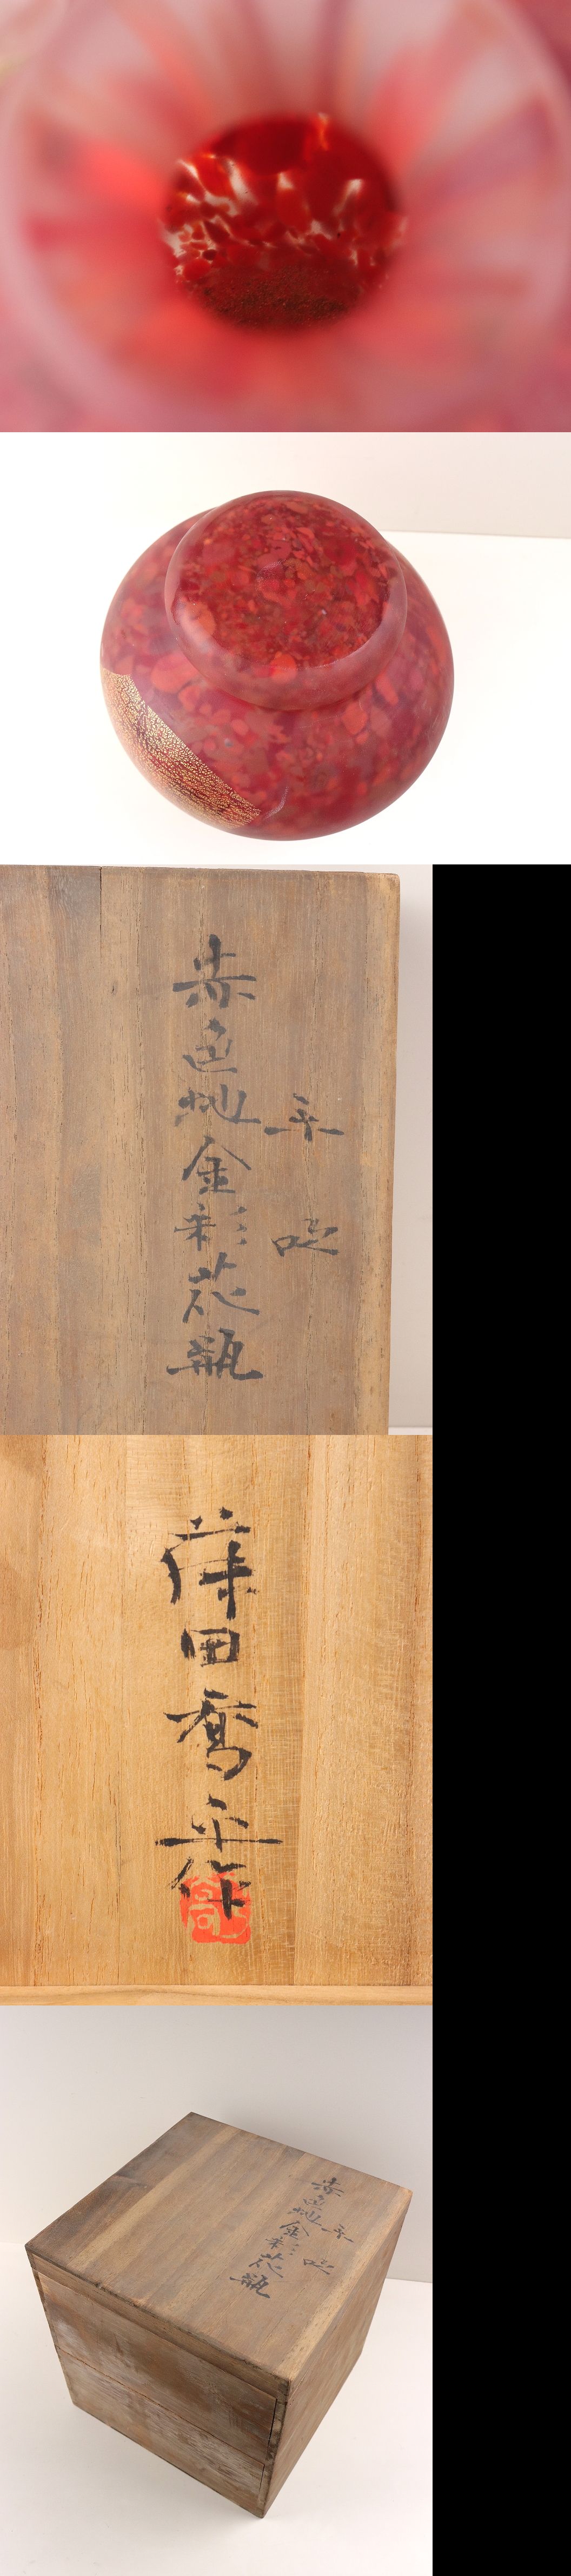 手吹
赤色地金彩花瓶
藤田喬平作
喬
手吹
赤色地金彩花瓶